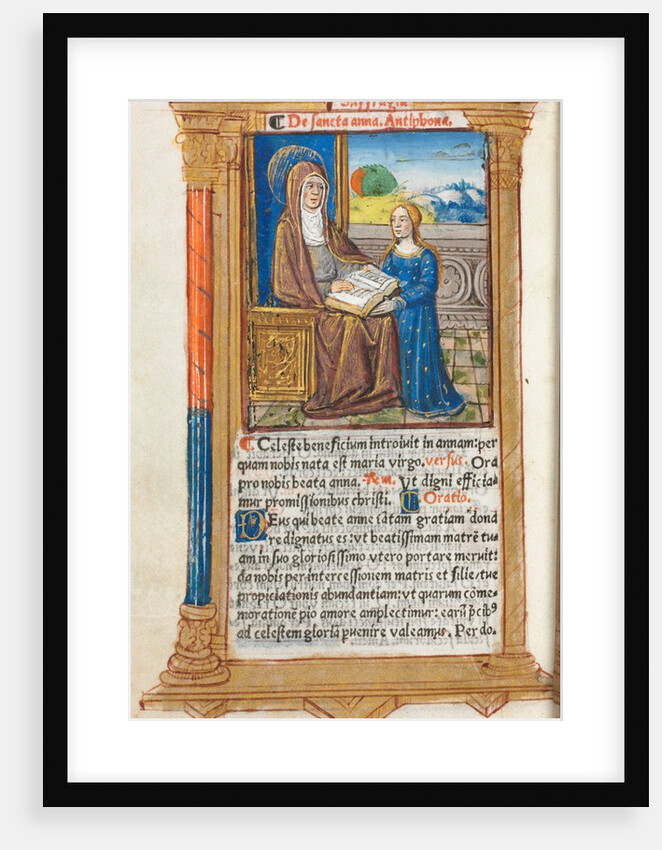 Suffragia
De sancta anna. Antiphona.
Celeste beneficium introiuit in annam: per
quam nobis nata est maria virgo. versus. Ora
pro nobis beata anna. Rem. Ut digni efficia-
mur promissionibus christi. Oratio.
DEus qui beate anne tãtam gratiam dona
re dignatus es: ut beatissimam matrẽ tu-
am in suo gloriosissimo vtero portare meruit:
da nobis per intercessionem matris et filie, tue
propiciationis abundantiam: vt quarum come-
morationẽ pio amore amplectimur: earũ p̃cibꝰ
ad celestem gloriã ꝑuenire valeamus. Per do.